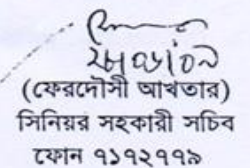 (ফেরদৌসী আখতার)
সিনিয়র সহকারী সচিব
ফোন ৭১৭২৭৭৯